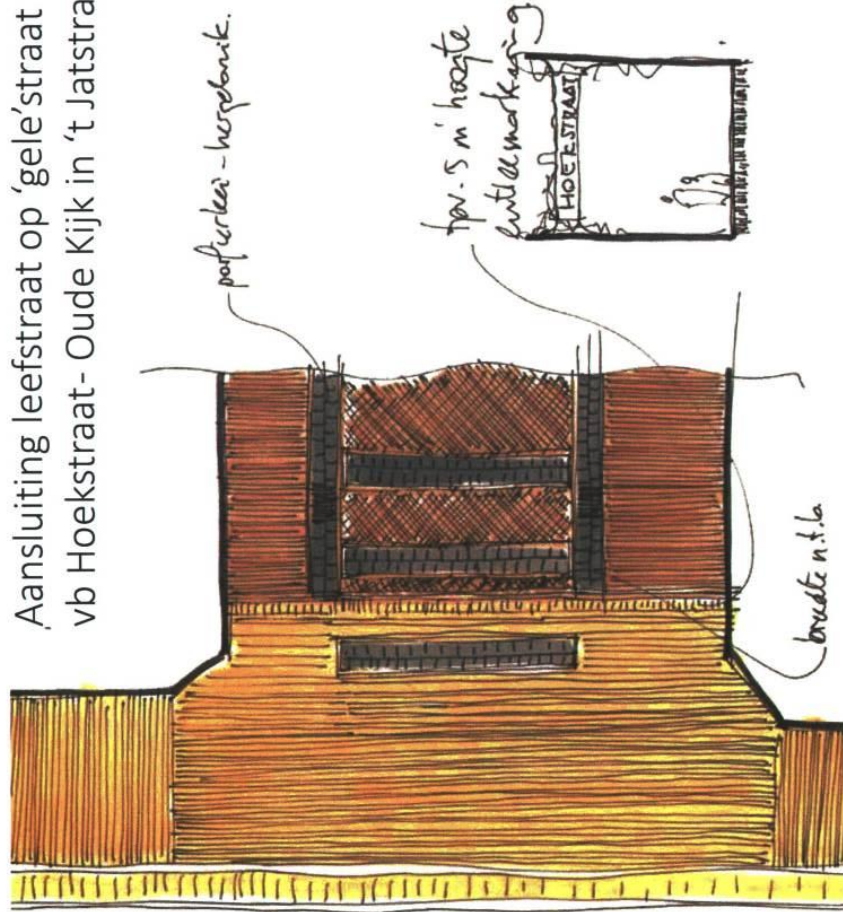 Aansluiting leefstraat op ‘gele’straat
vb Hoekstraat- Oude Kijk in ‘t Jatstra
porfierkei - hergebruik.
tpv. 5 m' hoogte
HOEKSTRAAT
breedte n.t.b